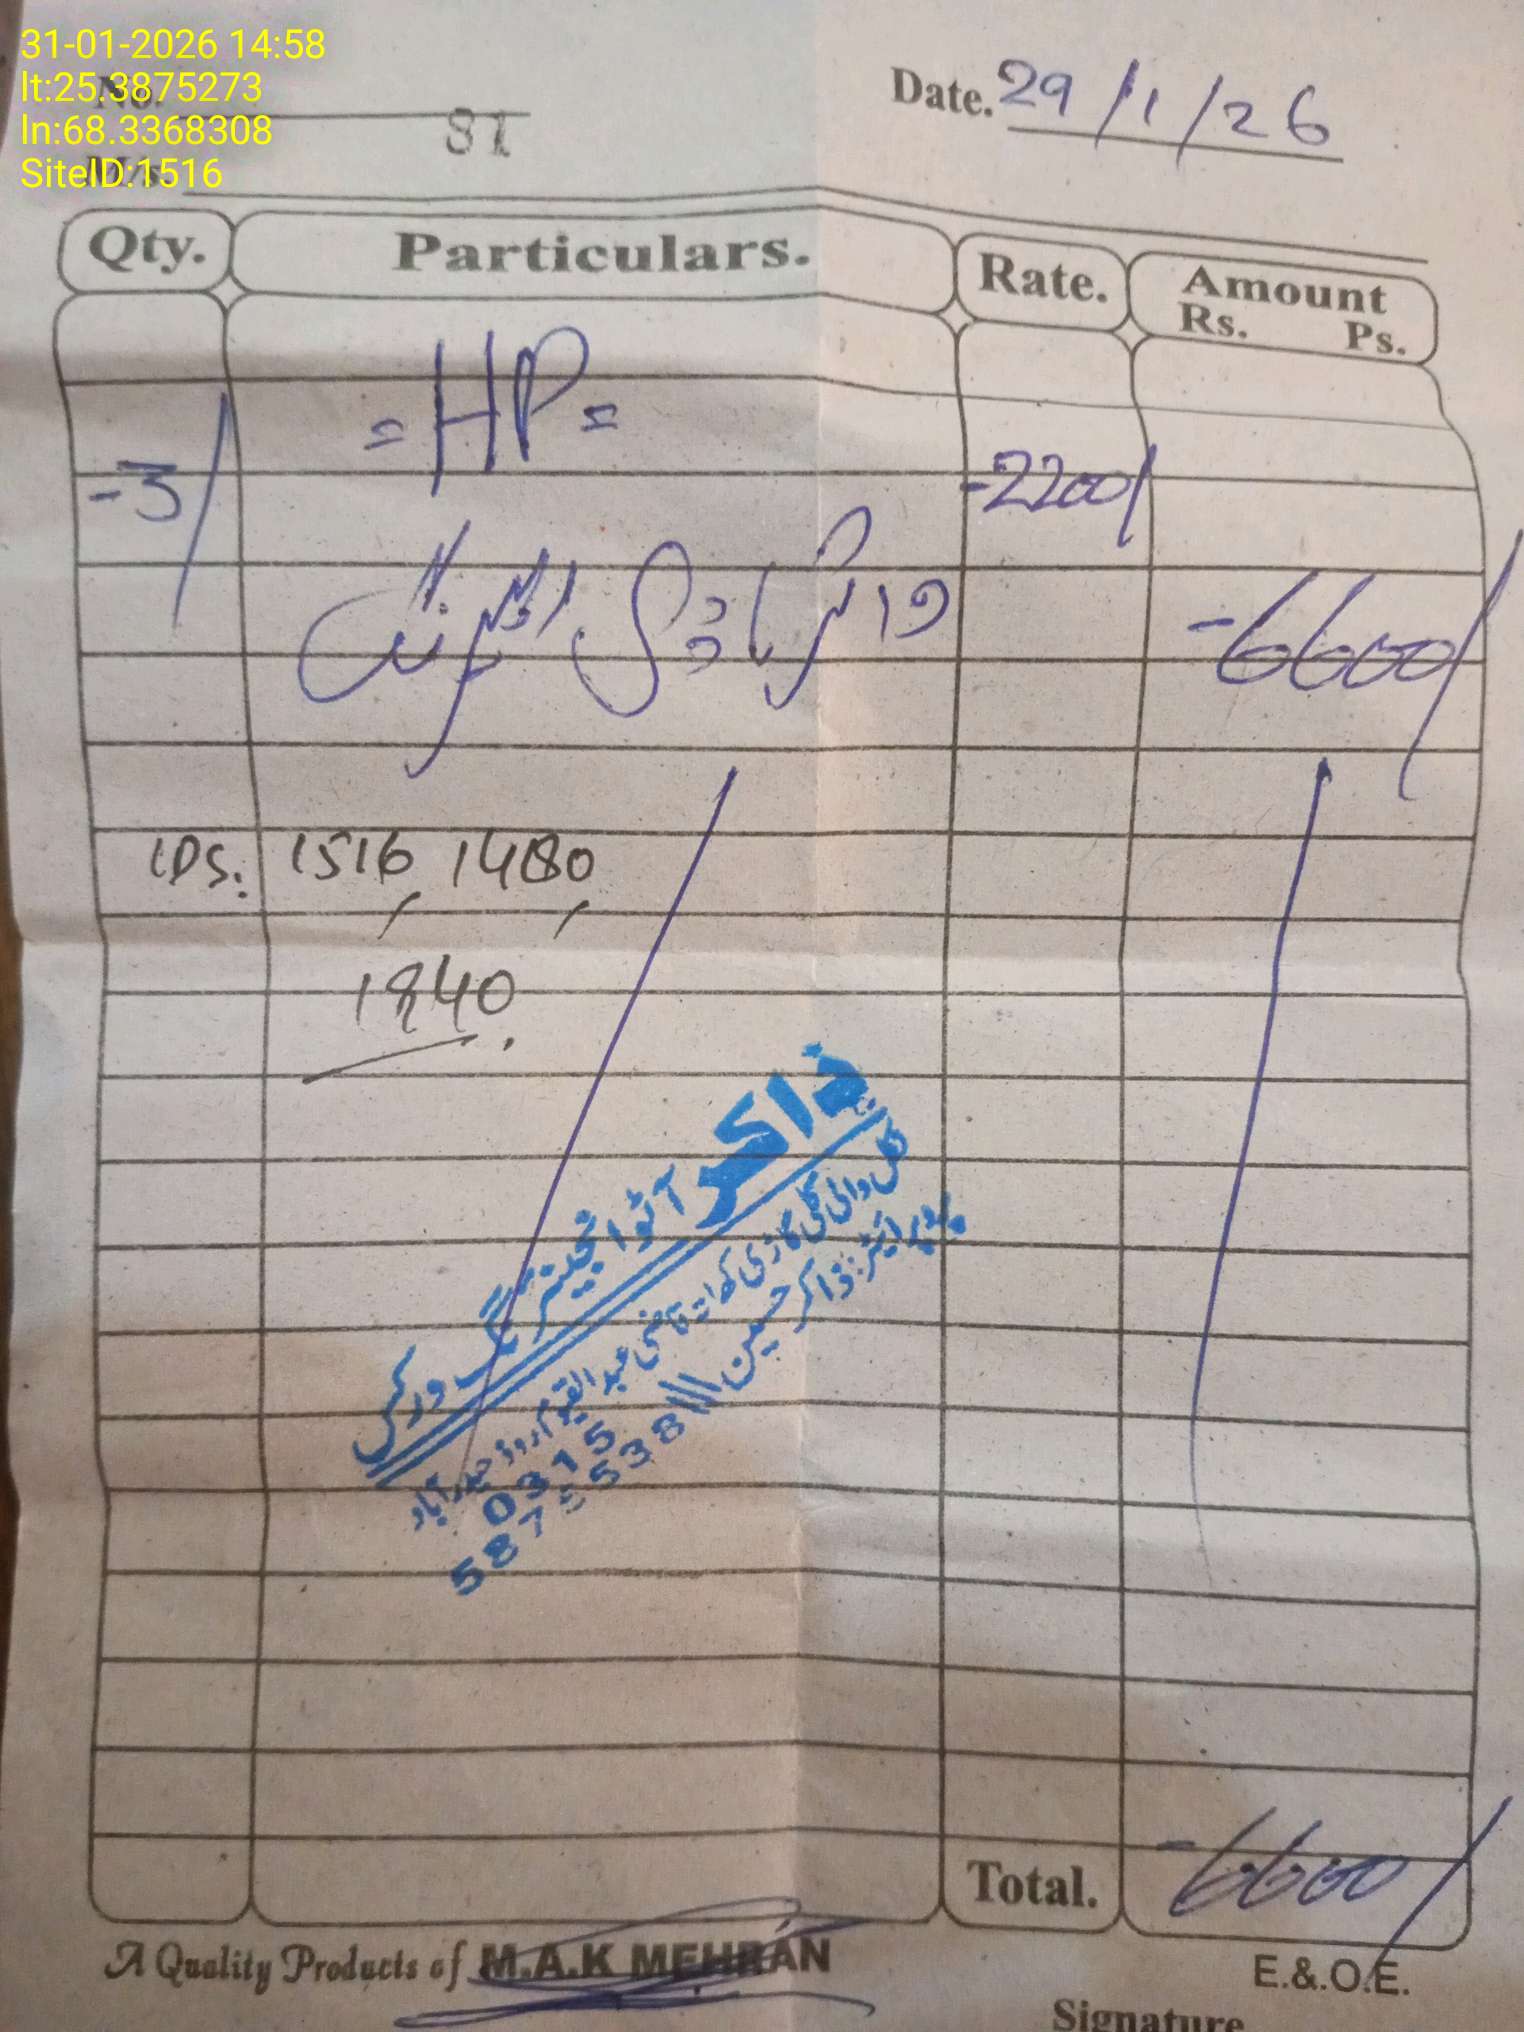 31-01-2026 14:58
lt:25.3875273
ln:68.3368308
SiteID:1516
No. 81
Date. 29/1/26
M/s.
Qty. Particulars. Rate. Amount
Rs. Ps.
=HP=
-3/ -2200/
-6600/
IDS: 1516, 1480,
1840.
ذاکر
آٹو انجینئرنگ ورکس
گل والی گلی گاڑی کھاتہ قاضی عبدالقیوم روڈ حیدرآباد
پروپرائیٹر: ذاکر حسین
0315
5875538
Total. -6600/
A Quality Products of M.A.K MEHRAN
E.&.O.E.
Signature